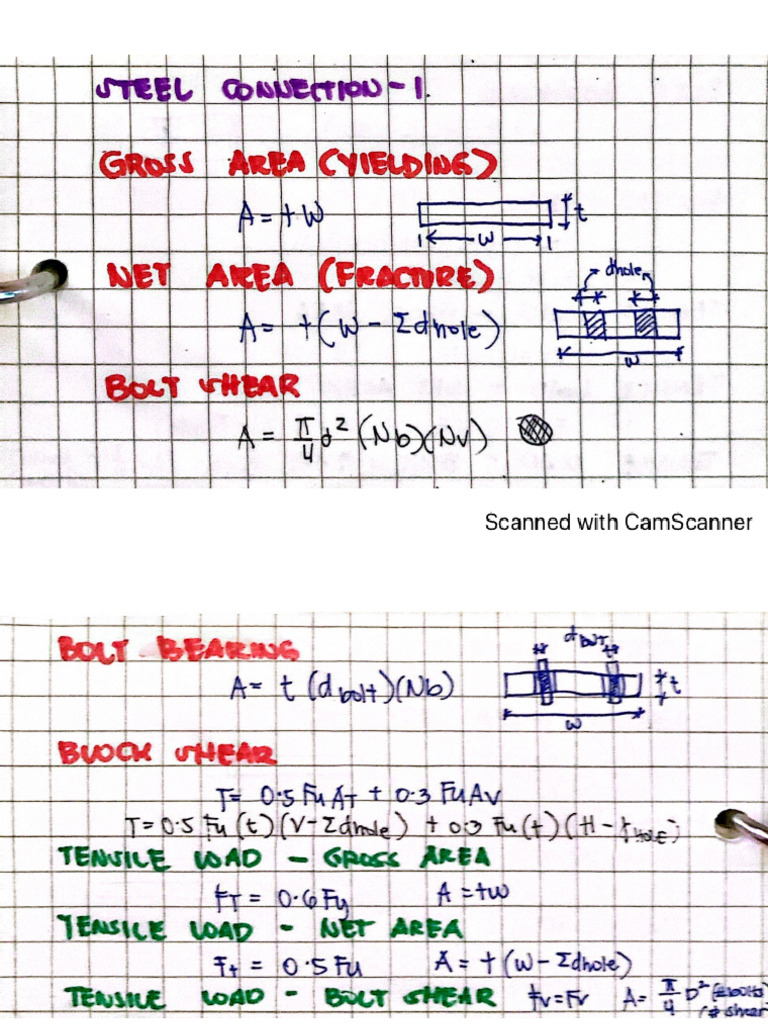 STEEL CONNECTION - 1.
GROSS AREA (YIELDING)
A = tW
t
W
NET AREA (FRACTURE)
dhole
A = t(W - Σdhole)
W
BOLT SHEAR
A = π/4 d² (Nb)(Nv)
Scanned with CamScanner
BOLT BEARING
dBOLT
A = t (dbolt)(Nb)
t
W
BLOCK SHEAR
T = 0.5 Fu AT + 0.3 Fu Av
T = 0.5 Fu (t)(V - Σdhole) + 0.3 Fu (t)(H - HOLE)
TENSILE LOAD - GROSS AREA
FT = 0.6 Fy A = tw
TENSILE LOAD - NET AREA
Ft = 0.5 Fu A = t(W - Σdhole)
TENSILE LOAD - BOLT SHEAR fv = Fv A = π/4 D² (#bolts)
(# shear